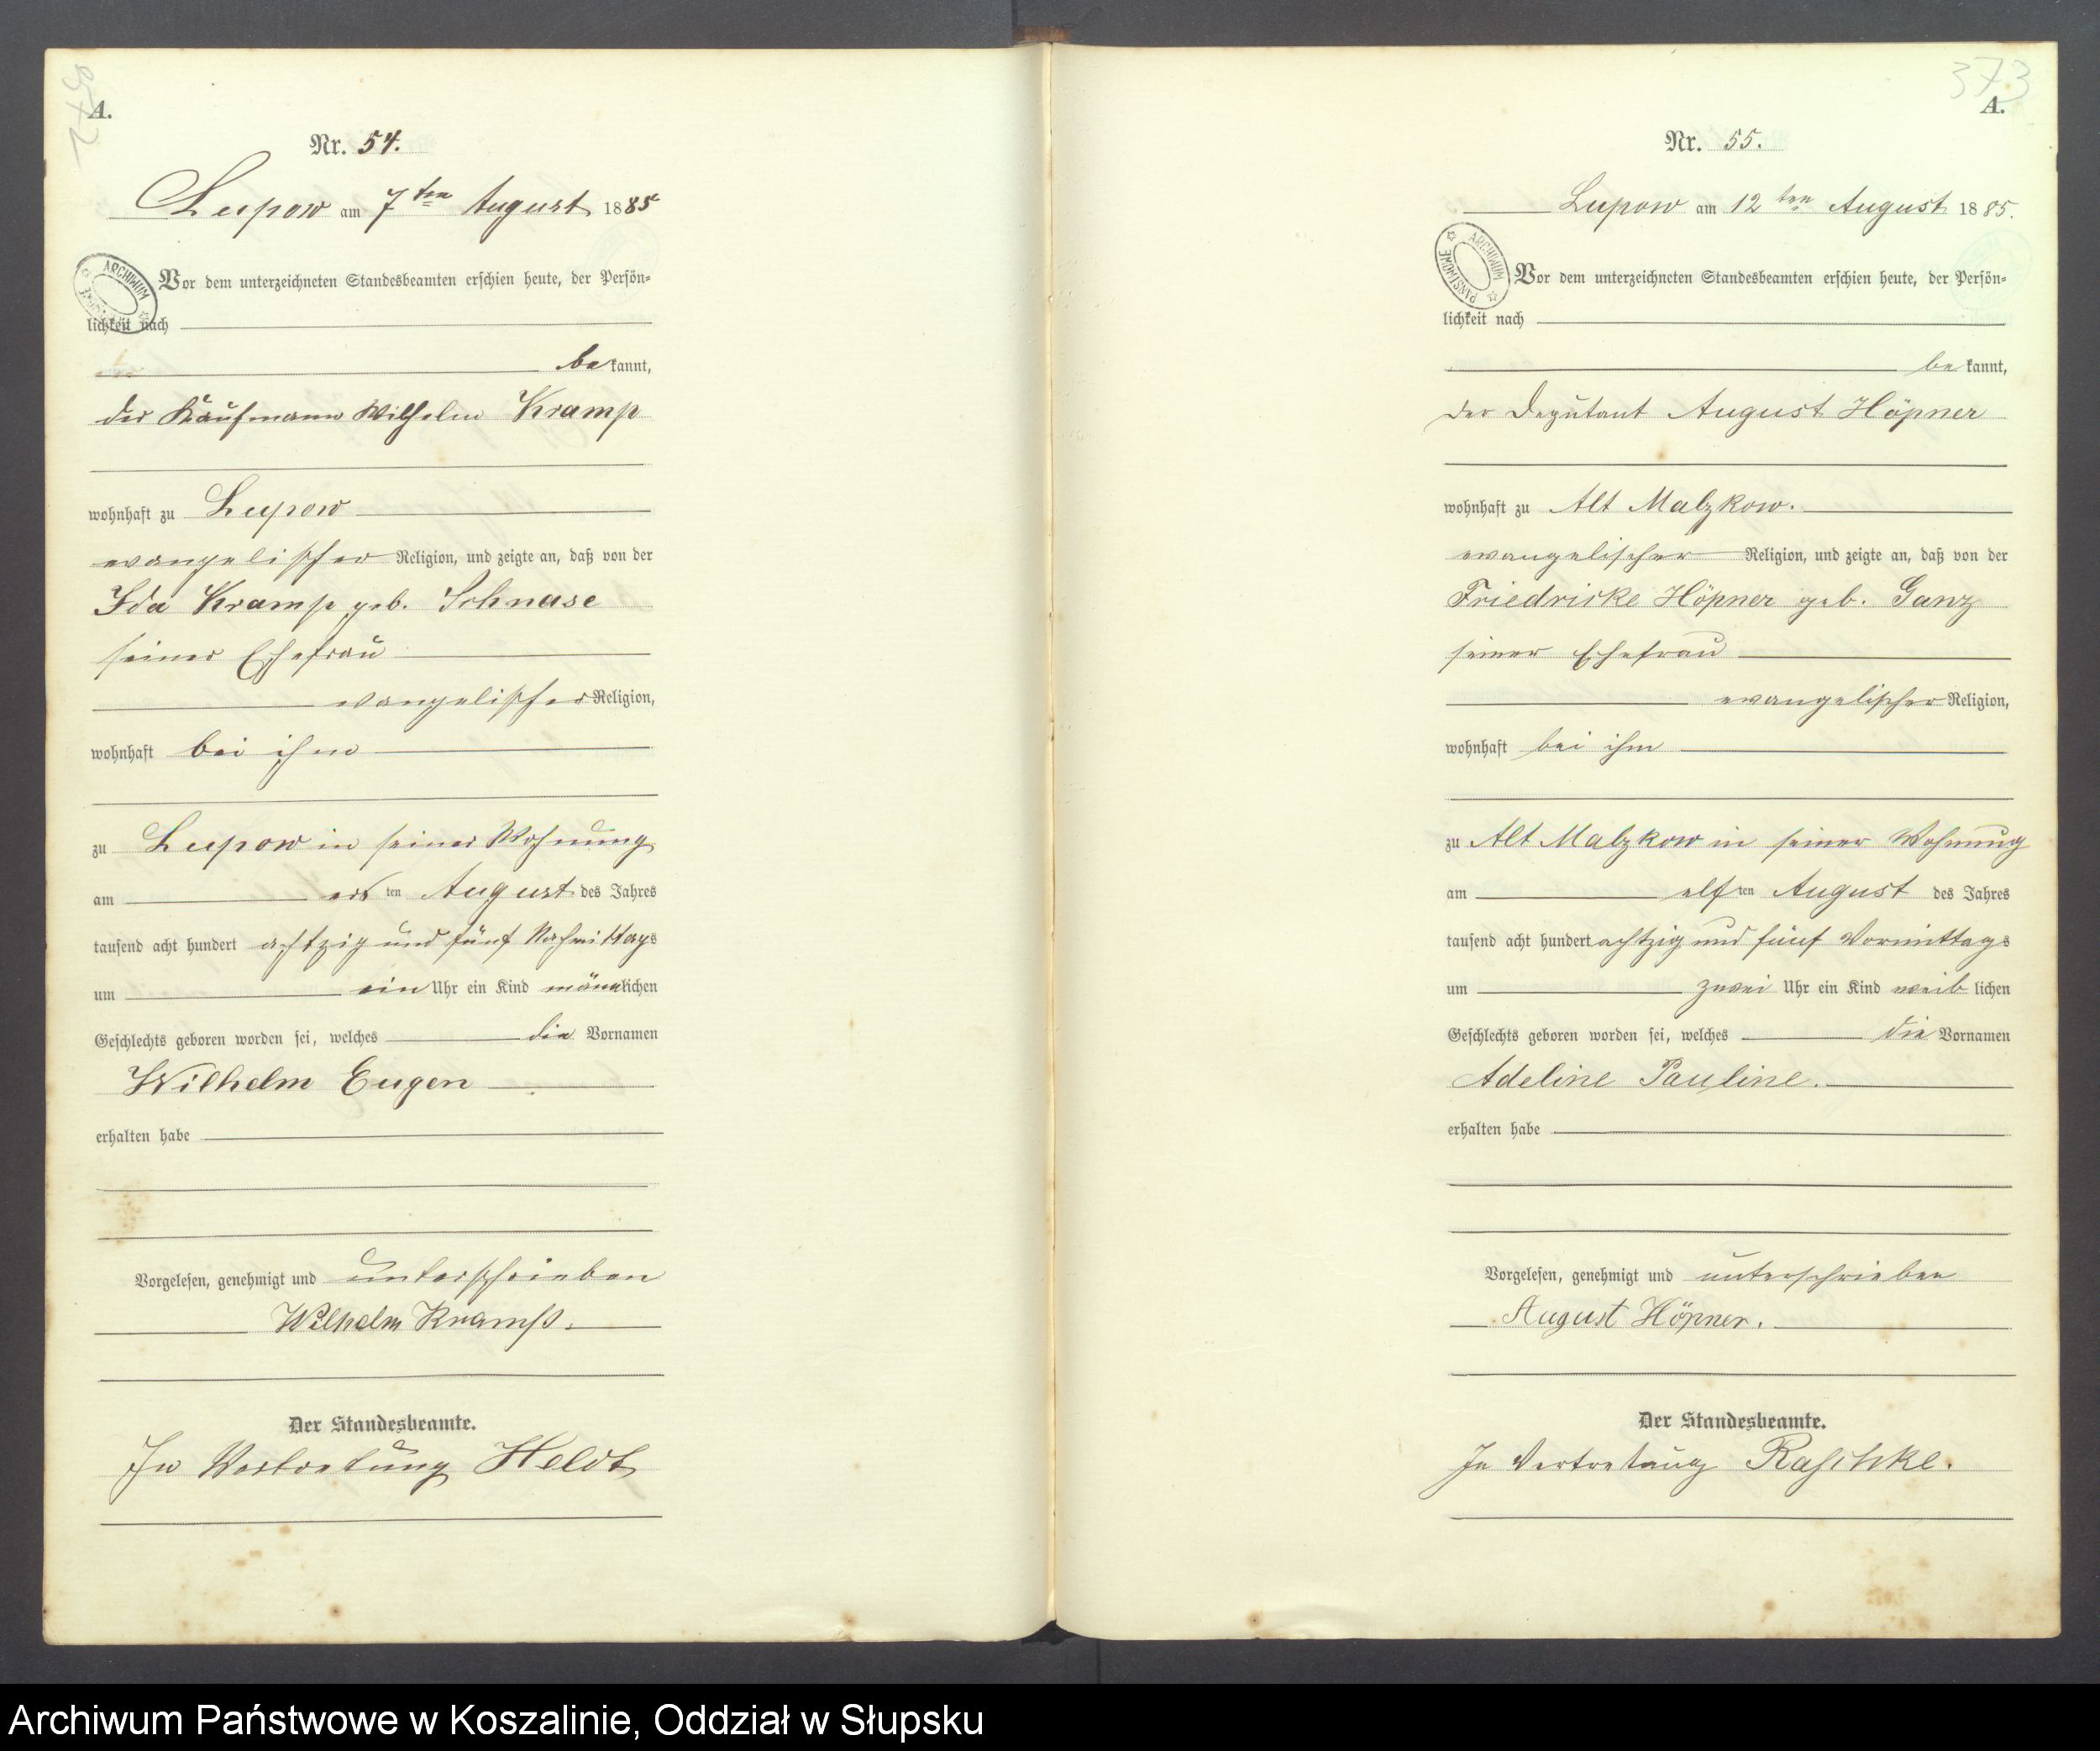 372
A.
Nr. 54.
Lupow am 7ten August 1885
ARCHIWUM
Vor dem unterzeichneten Standesbeamten erschien heute, der Persön-
lichkeit nach
bekannt,
der Kaufmann Wilhelm Kramp
wohnhaft zu Lupow
evangelischer Religion, und zeigte an, daß von der
Ida Kramp geb. Schnase
seiner Ehefrau
evangelischer Religion,
wohnhaft bei ihm
zu Lupow in seiner Wohnung
am ersten August des Jahres
tausend acht hundert achtzig und fünf Nachmittags
um ein Uhr ein Kind männlichen
Geschlechts geboren worden sei, welches die Vornamen
Wilhelm Eugen
erhalten habe
Vorgelesen, genehmigt und unterschrieben
Wilhelm Kramp.
Der Standesbeamte.
In Vertretung Heldt
373
A.
Nr. 55.
Lupow am 12ten August 1885.
ARCHIWUM PAŃSTWOWE
Vor dem unterzeichneten Standesbeamten erschien heute, der Persön-
lichkeit nach
bekannt,
der Deputant August Höpner
wohnhaft zu Alt Malzkow.
evangelischer Religion, und zeigte an, daß von der
Friedricke Höpner geb. Ganz
seiner Ehefrau
evangelischer Religion,
wohnhaft bei ihm
zu Alt Malzkow in seiner Wohnung
am elften August des Jahres
tausend acht hundert achtzig und fünf Vormittags
um zwei Uhr ein Kind weiblichen
Geschlechts geboren worden sei, welches die Vornamen
Adeline Pauline.
erhalten habe
Vorgelesen, genehmigt und unterschrieben
August Höpner.
Der Standesbeamte.
In Vertretung Raschke.
Archiwum Państwowe w Koszalinie, Oddział w Słupsku